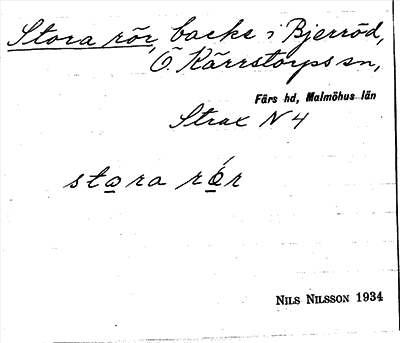 Stora rör, backe i Bjerröd,
Ö. Kärrstorps sn,
Färs hd, Malmöhus län
Strax N 4
stora rór
NILS NILSSON 1934